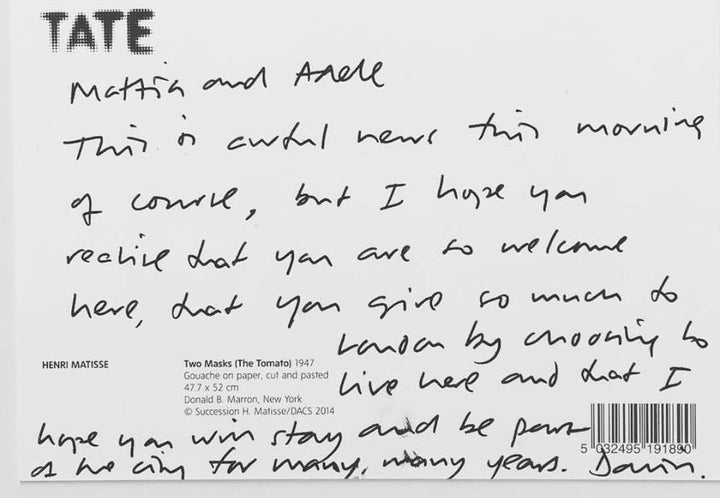 TATE
Mattia and Adele
This is awful news this morning
of course, but I hope you
realise that you are so welcome
here, that you give so much to
London by choosing to
HENRI MATISSE
Two Masks (The Tomato) 1947
Gouache on paper, cut and pasted
47.7 x 52 cm
Donald B. Marron, New York
© Succession H. Matisse/DACS 2014
live here and that I
hope you will stay and be part
5 032495 191890
of the city for many, many years.